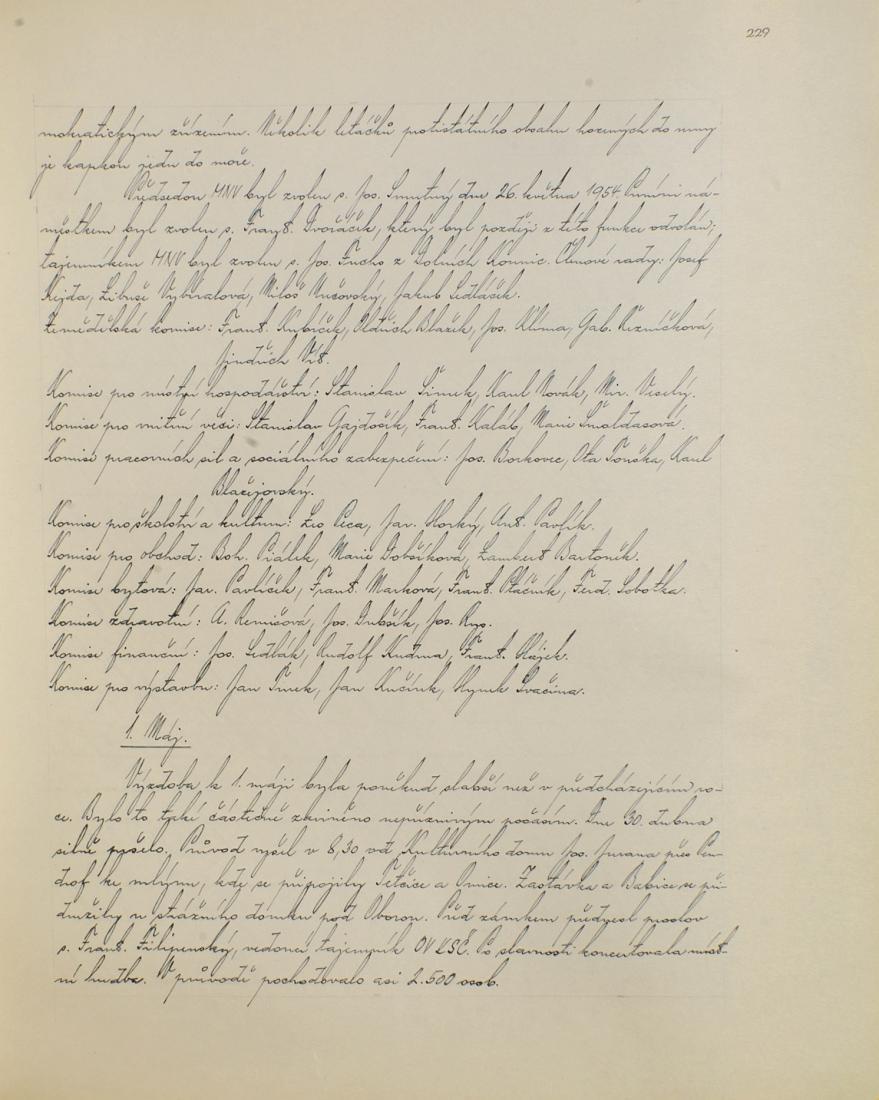 229
mokratickým zřízením. Několik letáčků protistátního obsahu hozených do naší
je kapkou jedu do moře.
Předsedou MNV byl zvolen s. Jos. Smutný dne 26. května 1954. Prvním ná-
městkem byl zvolen s. Frant. Dvořáček, který byl později z této funkce odvolán;
tajemníkem MNV byl zvolen s. Jos. Fuchs z Dolních Kounic. Členové rady: Josef
Kejda, Libuše Vybíralová, Miloš Kučovský, Jakub Sedláček.
Zemědělská komise: Frant. Kubíček, Oldřich Blažek, Jos. Klíma, Gab. Řezníčková,
Jindřich Vít.
Komise pro místní hospodářství: Stanislav Šimek, Karel Novák, Mir. Veselý.
Komise pro vnitřní věci: Stanislav Gajdošík, Frant. Kaláb, Marie Šmoldasová.
Komise pracovních sil a sociálního zabezpečení: Jos. Borkovec, Ota Fouska, Karel
Blažejovský.
Komise pro školství a kulturu: Leo Peca, Jar. Horký, Ant. Pavlík.
Komise pro obchod: Boh. Piálek, Marie Dobšíková, Lambert Bartoněk.
Komise bytová: Jar. Pavlíček, Frant. Marková, Frant. Ptáčník, Ferd. Sobotka.
Komise zdravotní: A. Remišová, Jos. Dubšík, Jos. Rys.
Komise finanční: Jos. Sedlák, Rudolf Kudrna, Frant. Hájek.
Komise pro výstavbu: Jan Šmek, Jan Kučínk, Hynek Svačina.
1. Máj.
Výzdoba k 1. máji byla poněkud slabší než v předcházejícím ro-
ce. Bylo to také částečně zaviněno nepříznivým počasím. Dne 30. dubna
silně pršelo. Průvod vyšel v 8,30 od Kulturního domu Jos. Jurana přes Cen-
drof ke mlýnu, kde se připojily Tetčice a Omice. Zastávka a Babice se při-
družily u strážního domku pod Oborou. Před zámkem přednesl proslov
s. Frant. Filipenský, vedoucí tajemník OV KSČ. Po slavnosti koncertovala míst-
ní hudba. V průvodě pochodovalo asi 2.500 osob.